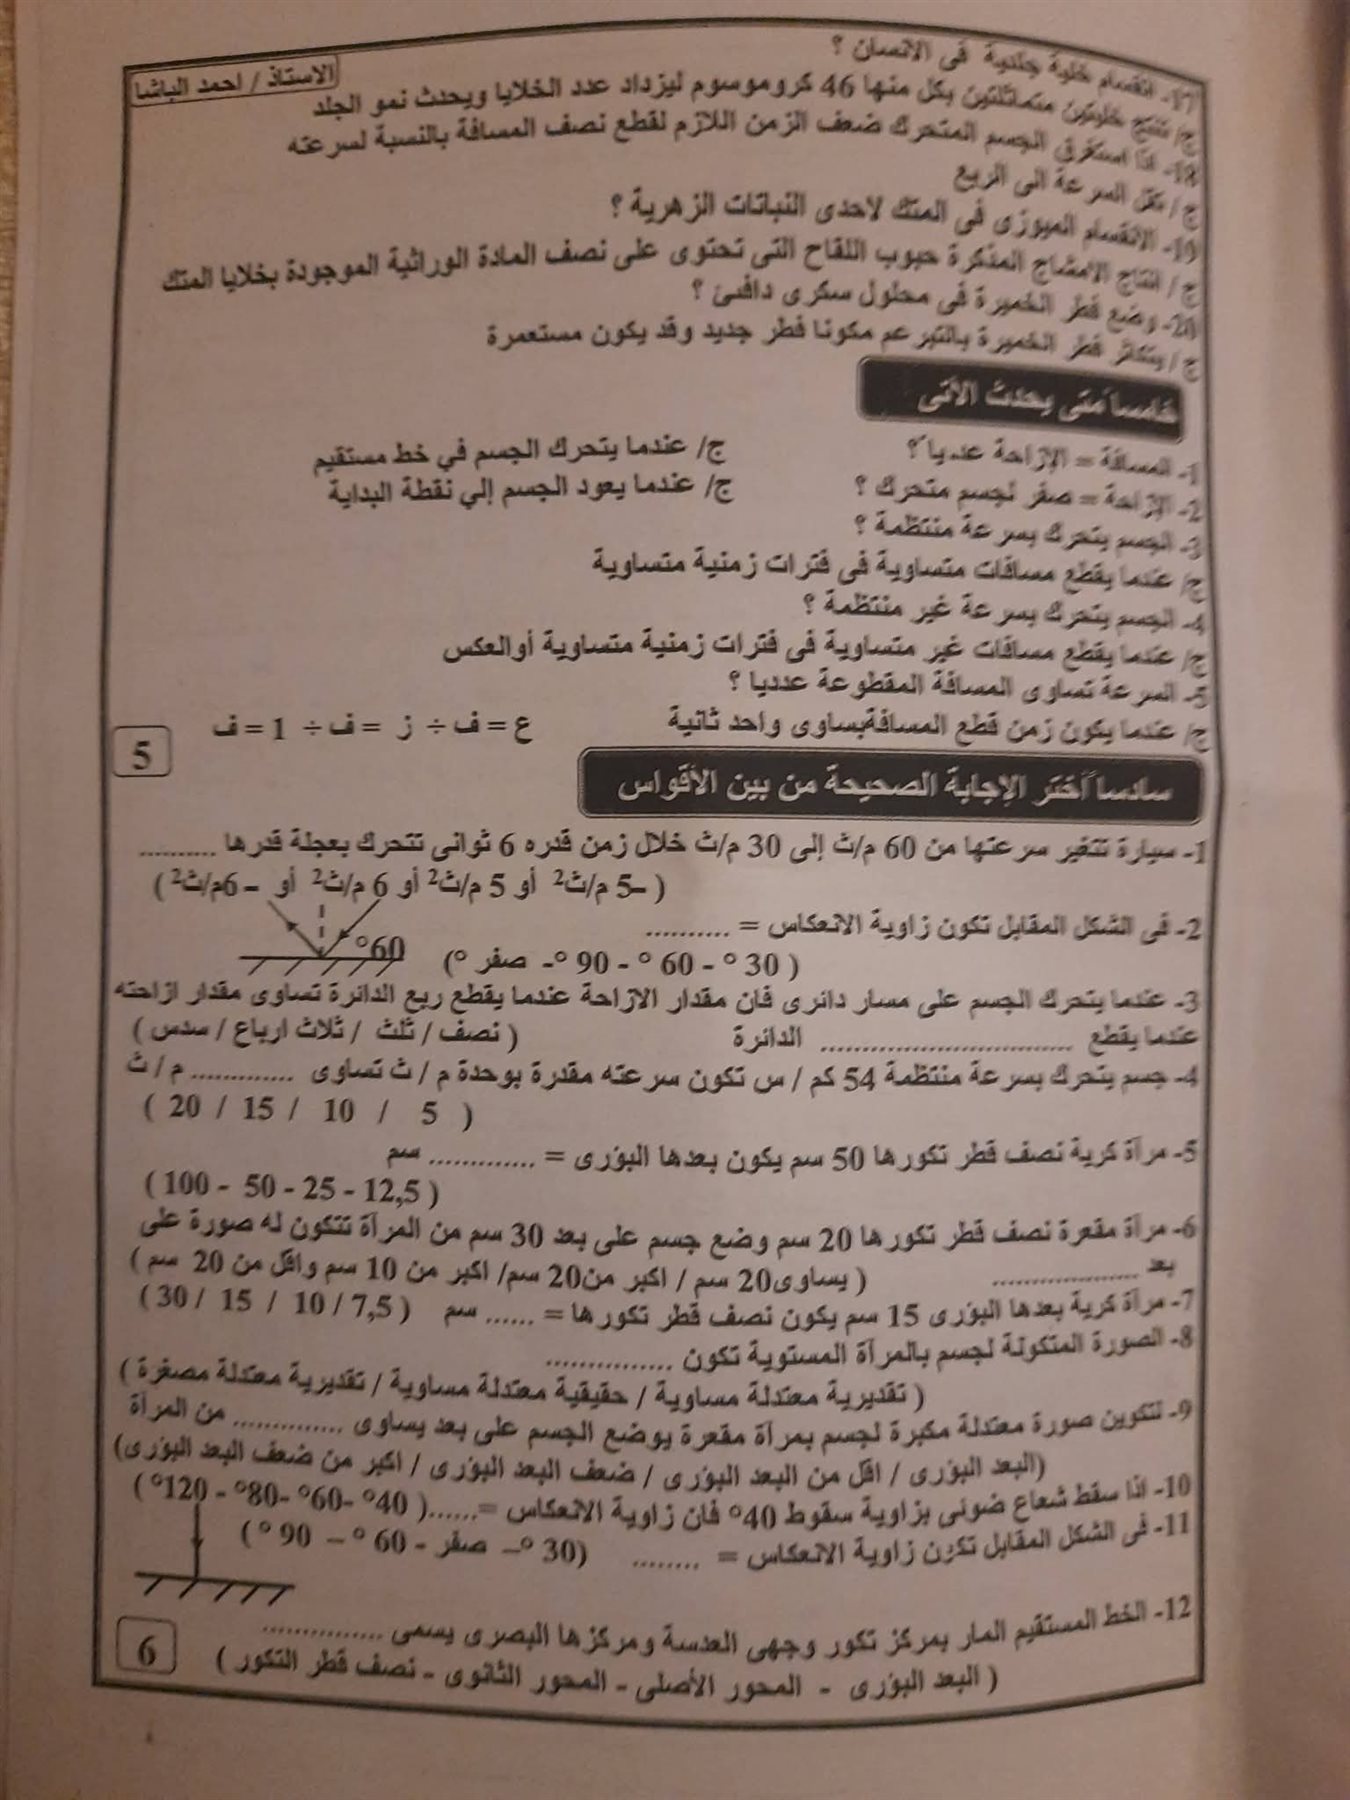 الاستاذ / احمد الباشا
17- انقسام خلية جلدية فى الانسان ؟
ج/ تنتج خليتين متماثلتين بكل منها 46 كروموسوم ليزداد عدد الخلايا ويحدث نمو الجلد
18- اذا استغرق الجسم المتحرك ضعف الزمن اللازم لقطع نصف المسافة بالنسبة لسرعته
ج / تقل السرعة الى الربع
19- الانقسام الميوزى فى المتك لاحدى النباتات الزهرية ؟
ج / انتاج الامشاج المذكرة حبوب اللقاح التى تحتوى على نصف المادة الوراثية الموجودة بخلايا المتك
20- وضع فطر الخميرة فى محلول سكرى دافئ ؟
ج / يتكاثر فطر الخميرة بالتبرعم مكونا فطر جديد وقد يكون مستعمرة
خامساً متى يحدث الأتى
1- المسافة = الإزاحة عدديا ً؟ ج/ عندما يتحرك الجسم في خط مستقيم
2- الإزاحة = صفر لجسم متحرك ؟ ج/ عندما يعود الجسم إلي نقطة البداية
3- الجسم يتحرك بسرعة منتظمة ؟
ج/ عندما يقطع مسافات متساوية فى فترات زمنية متساوية
4- الجسم يتحرك بسرعة غير منتظمة ؟
ج/ عندما يقطع مسافات غير متساوية فى فترات زمنية متساوية أوالعكس
5- السرعة تساوى المسافة المقطوعة عدديا ؟
ج/ عندما يكون زمن قطع المسافةيساوى واحد ثانية ع = ف ÷ ز = ف ÷ 1 = ف
5
سادساً أختر الإجابة الصحيحة من بين الأقواس
1- سيارة تتغير سرعتها من 60 م/ث إلى 30 م/ث خلال زمن قدره 6 ثوانى تتحرك بعجلة قدرها ..........
( –5 م/ث2 أو 5 م/ث2 أو 6 م/ث2 أو – 6م/ث2 )
2- فى الشكل المقابل تكون زاوية الانعكاس = ..........
60°
( 30 ° - 60 ° - 90 °- صفر °)
3- عندما يتحرك الجسم على مسار دائرى فان مقدار الازاحة عندما يقطع ربع الدائرة تساوى مقدار ازاحته
عندما يقطع .............................. الدائرة ( نصف / ثلث / ثلاث ارباع / سدس )
4- جسم يتحرك بسرعة منتظمة 54 كم / س تكون سرعته مقدرة بوحدة م / ث تساوى ............. م / ث
( 5 / 10 / 15 / 20 )
5- مرآة كرية نصف قطر تكورها 50 سم يكون بعدها البؤرى = ............. سم
( 12,5 - 25 - 50 - 100 )
6- مرآة مقعرة نصف قطر تكورها 20 سم وضع جسم على بعد 30 سم من المرآة تتكون له صورة على
بعد .................. ( يساوى20 سم / اكبر من20 سم/ اكبر من 10 سم واقل من 20 سم )
7- مرآة كرية بعدها البؤرى 15 سم يكون نصف قطر تكورها = ...... سم ( 7,5 / 10 / 15 / 30 )
8- الصورة المتكونة لجسم بالمرآة المستوية تكون ...............
( تقديرية معتدلة مساوية / حقيقية معتدلة مساوية / تقديرية معتدلة مصغرة )
9- لتكوين صورة معتدلة مكبرة لجسم بمرآة مقعرة يوضع الجسم على بعد يساوى ............. من المرآة
(البعد البؤرى / اقل من البعد البؤرى / ضعف البعد البؤرى / اكبر من ضعف البعد البؤرى)
10- اذا سقط شعاع ضوئى بزاوية سقوط 40° فان زاوية الانعكاس =......( 40° -60° -80° - 120° )
11- فى الشكل المقابل تكون زاوية الانعكاس = ........ (30 °– صفر - 60 ° – 90 ° )
12- الخط المستقيم المار بمركز تكور وجهى العدسة ومركزها البصرى يسمى ...............
( البعد البؤرى - المحور الأصلى - المحور الثانوى - نصف قطر التكور )
6